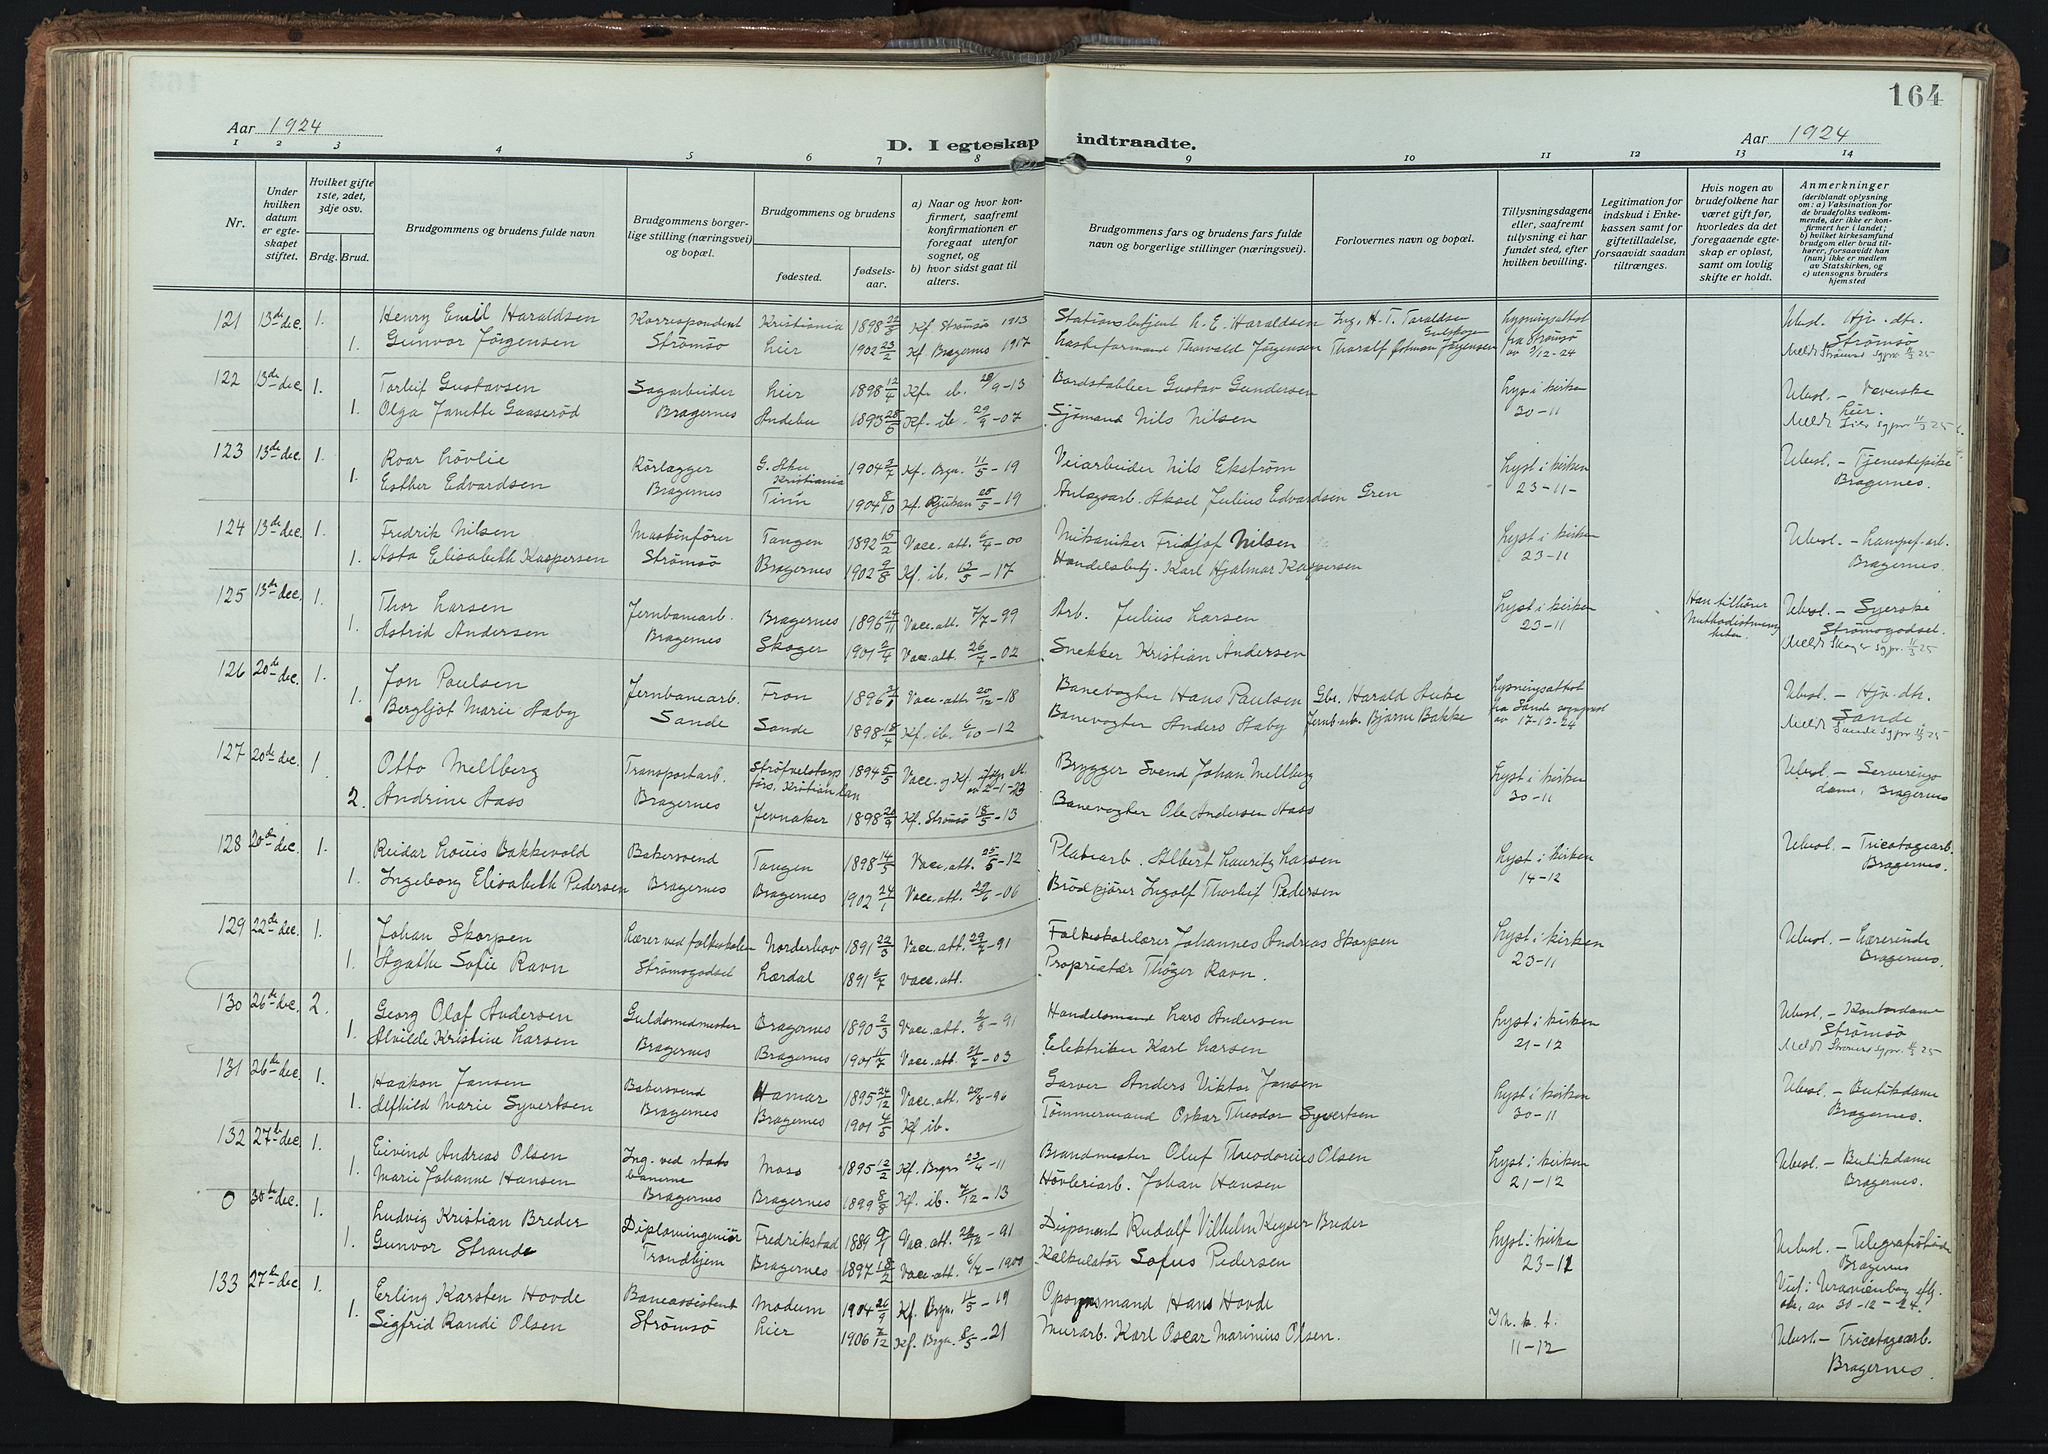 164
Aar 1924
D. I egteskap indtraadte.
Aar 1924
1 2 3 4 5 6 7 8 9 10 11 12 13 14
Nr.
Under hvilken datum er egteskapet stiftet.
Hvilket gifte 1ste, 2det, 3dje osv.
Brdg. Brud.
Brudgommens og brudens fulde navn
Brudgommens borgerlige stilling (næringsvei) og bopæl.
Brudgommens og brudens
fødested.
fødselsaar.
a) Naar og hvor konfirmert, saafremt konfirmationen er foregaat utenfor sognet, og
b) hvor sidst gaat til alters.
Brudgommens fars og brudens fars fulde navn og borgerlige stillinger (næringsvei).
Forlovernes navn og bopæl.
Tillysningsdagene eller, saafremt tillysning ei har fundet sted, efter hvilken bevilling.
Legitimation for indskud i Enkekassen samt for giftetilladelse, forsaavidt saadan tiltrænges.
Hvis nogen av brudefolkene har været gift før, hvorledes da det foregaaende egteskap er opløst, samt om lovlig skifte er holdt.
Anmerkninger
(deriblandt oplysning om: a) Vaksination for de brudefolks vedkommende, der ikke er konfirmert her i landet; b) hvilket kirkesamfund brudgom eller brud tilhører, forsaavidt han (hun) ikke er medlem av Statskirken, og c) utensogns bruders hjemsted
121 13de dec. 1. Henry Emil Haraldsen Korrespondent Kristiania 1898 Kf. Strømsø 1913 Stationsbetjent L. E. Haraldsen Ing. H. T. Taraldsen Lysningsattest Ubesl. Hjv. dtr.
1. Gunvor Jörgensen Strömsö Lier 1902 23/2 Kf. Bragernes 1917 Lasteformand Thorvald Jörgensen Tharalf Jörgensen fra Strömsö av 9/12-24 Strömsö
122 13de dec. 1. Torleif Gustavsen Sagarbeider Lier 1898 12/4 Kf. ib. 28/9-13 Bordstabler Gustav Gundersen Lyst i kirken Ubesl. - Væverske
1. Olga Janette Gaaserød Bragernes Andebu 1895 28/5 Kf. ib. 29/9-07 Sjömand Nils Nilsen 30-11 Lier.
Meldt Lier sgpr. 11/3 25
123 13de dec. 1. Roar Lövlie Rörlægger G. Aker Kristiania 1904 Kf. Brgn. 11/5-19 Veiarbeider Nils Ekström Lyst i kirken Ubesl. - Tjenestepike
1. Esther Edvardsen Bragernes Tinn 1904 8/10 Kf. Rjukan 25/5-19 Anlægsarb. Aksel Julius Edvardsen Gren 23-11- Bragernes.
124 13de dec. 1. Fredrik Nilsen Maskinfører Tangen 1892 15/2 Vacc. att. 6/4-00 Mekaniker Fridjof Nilsen Lyst i kirken Ubesl. - Lampef.arb.
1. Asta Elisabeth Kaspersen Strömsö Bragernes 1902 9/8 Kf. ib. 13/5-17 Handelsbetj. Karl Hjalmar Kaspersen 23-11 Bragernes.
125 13de dec. 1. Thor Larsen Jernbanearb. Bragernes 1896 24/11 Vacc. att. 7/7-99 Arb. Julius Larsen Lyst i kirken Han tilhører Methodistmenigheten. Ubesl. - Syerske
1. Astrid Andersen Bragernes Skoger 1901 Vacc. att. 26/7-02 Snekker Kristian Andersen 23-11 Strömsgodset.
Meldt Skoger sgpr. 11/3 25
126 20de dec. 1. Jon Paulsen Jernbanearb. Fron 1896 Vacc. att. 20/12-18 Banevogter Hans Paulsen Gbr. Harald Lysningsattest Ubesl. - Hjv. dtr.
1. Bergljot Marie Haby Sande Sande 1898 18/4 Kf. ib. 6/10-12 Banevogter Anders Haby Jernb.arb. Bjarne Bakke fra Sande sogneprest av 17-12-24 Sande
Meldt Sande sgpr. 11/3 25
127 20de dec. 1. Otto Mellberg Transportarb. 1894 5/5 Vacc. og Kf. ifølge att. av 2-1-23 Brygger Svend Johan Mellberg Lyst i kirken Ubesl. - Serveringsdame, Bragernes
2. Andrine Aass Bragernes Jevnaker 1898 Kf. Strömsö 18/5-13 Banevogter Ole Andersen Aass 30-11
128 20de dec. 1. Reidar Louis Bakkevold Bakersvend Tangen 1898 14/5 Vacc. att. 25/5-12 Platearb. Albert Lauritz Larsen Lyst i kirken Ubesl. - Tricotagearb.
1. Ingeborg Elisabeth Pedersen Bragernes Bragernes 1902 24/1 Vacc. att. 29/6-06 Brödkjörer Ingolf Thorleif Pedersen 14-12 Bragernes.
129 22de dec. 1. Johan Skorpen Lærer ved folkeskolen Norderhov 1891 22/3 Vacc. att. 29/7-91 Folkeskolelærer Johannes Andreas Skorpen Lyst i kirken Ubesl. - Lærerinde
1. Agathe Sofie Ravn Strömsgodset Lærdal 1891 6/7 Vacc. att. Proprietær Thöger Ravn. 23-11 Bragernes.
130 26de dec. 2. Georg Olaf Andersen Guldsmedmester Bragernes 1890 2/3 Vacc. att. -91 Handelsmand Lars Andersen Lyst i kirken Ubesl. - Kontordame
1. Alvilde Kristine Larsen Bragernes Bragernes 1901 11/7 Vacc. att. -03 Elektriker Karl Larsen 21-12 Strömsö
Meldt Strömsö sgpr. 11/3 25
131 26de dec. 1. Haakon Jansen Bakersvend Hamar 1895 24/12 Vacc. att. 20/8-96 Garver Anders Viktor Jansen Lyst i kirken Ubesl. - Butikdame
1. Alfhild Marie Syvertsen Bragernes Bragernes 1901 4/5 Kf. ib. Tömmermand Oskar Theodor Syvertsen 30-11 Bragernes.
132 27de dec. 1. Eivind Andreas Olsen Ing. ved statsbanerne Moss 1895 12/2 Kf. Brgn. 23/4-11 Brandmester Oluf Theodorius Olsen Lyst i kirken Ubesl. - Butikdame
1. Marie Johanne Hansen Bragernes Bragernes 1899 8/8 Kf. ib. 7/12-13 Hövleriarb. Johan Hansen 21-12 Bragernes.
0 30te dec. 1. Ludvig Kristian Breder Diplomingeniör Fredrikstad 1889 9/1 Vacc. att. -91 Disponent Rudolf Vilhelm Keyser Breder Lyst i kirken Ubesl. - Telegrafistinde
1. Gunvor Strande Trondhjem Bragernes 1897 18/2 Vacc. att. 6/7-1900 Kalkulatör Sofus Pedersen 23-11 Bragernes
Viet i Uranienborg efter att. av 30-12-24.
133 27de dec. 1. Erling Karsten Hovde Baneassistent Modum 1904 26/9 Kf. Brgn. 11/5-19 Opsynsmand Hans Hovde
1. Sigfrid Randi Olsen Strömsö Lier 1906 7/12 Kf. Brgn. 8/5-21 Murarb. Karl Oscar Marinius Olsen. 11-12 Ubesl. - Tricotagearb. Bragernes.